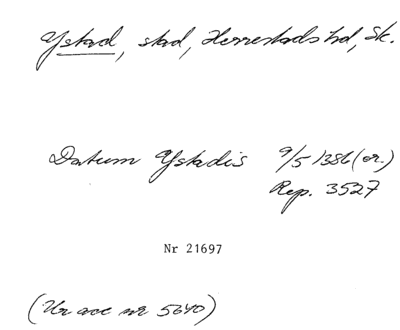 Ystad, stad, Herrestads hd, Sk.
Datum Ystadis 9/5 1386 (or.)
Rep. 3527
Nr 21697
(Ur acc nr 5640)